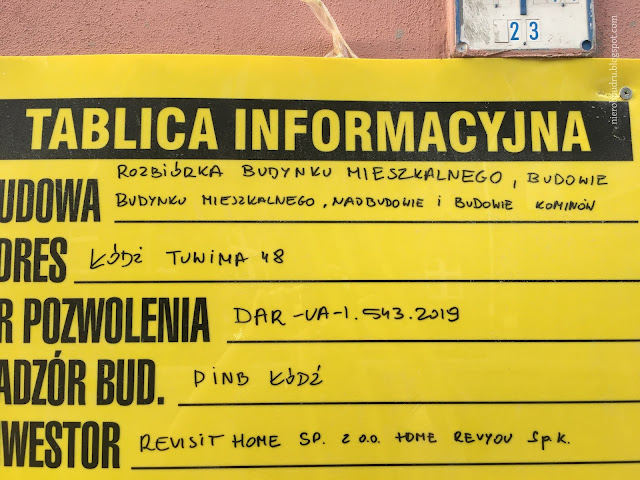 23
TABLICA INFORMACYJNA
UDOWA ROZBIÓRKA BUDYNKU MIESZKALNEGO, BUDOWIE
BUDYNKU MIESZKALNEGO, NADBUDOWIE i BUDOWIE KOMINÓW
DRES ŁÓDŹ TUWIMA 48
R POZWOLENIA DAR-UA-1.543.2019
ADZÓR BUD. PINB ŁÓDŹ
WESTOR REVISIT HOME SP. Z O.O. HOME REVYOU Sp.K.